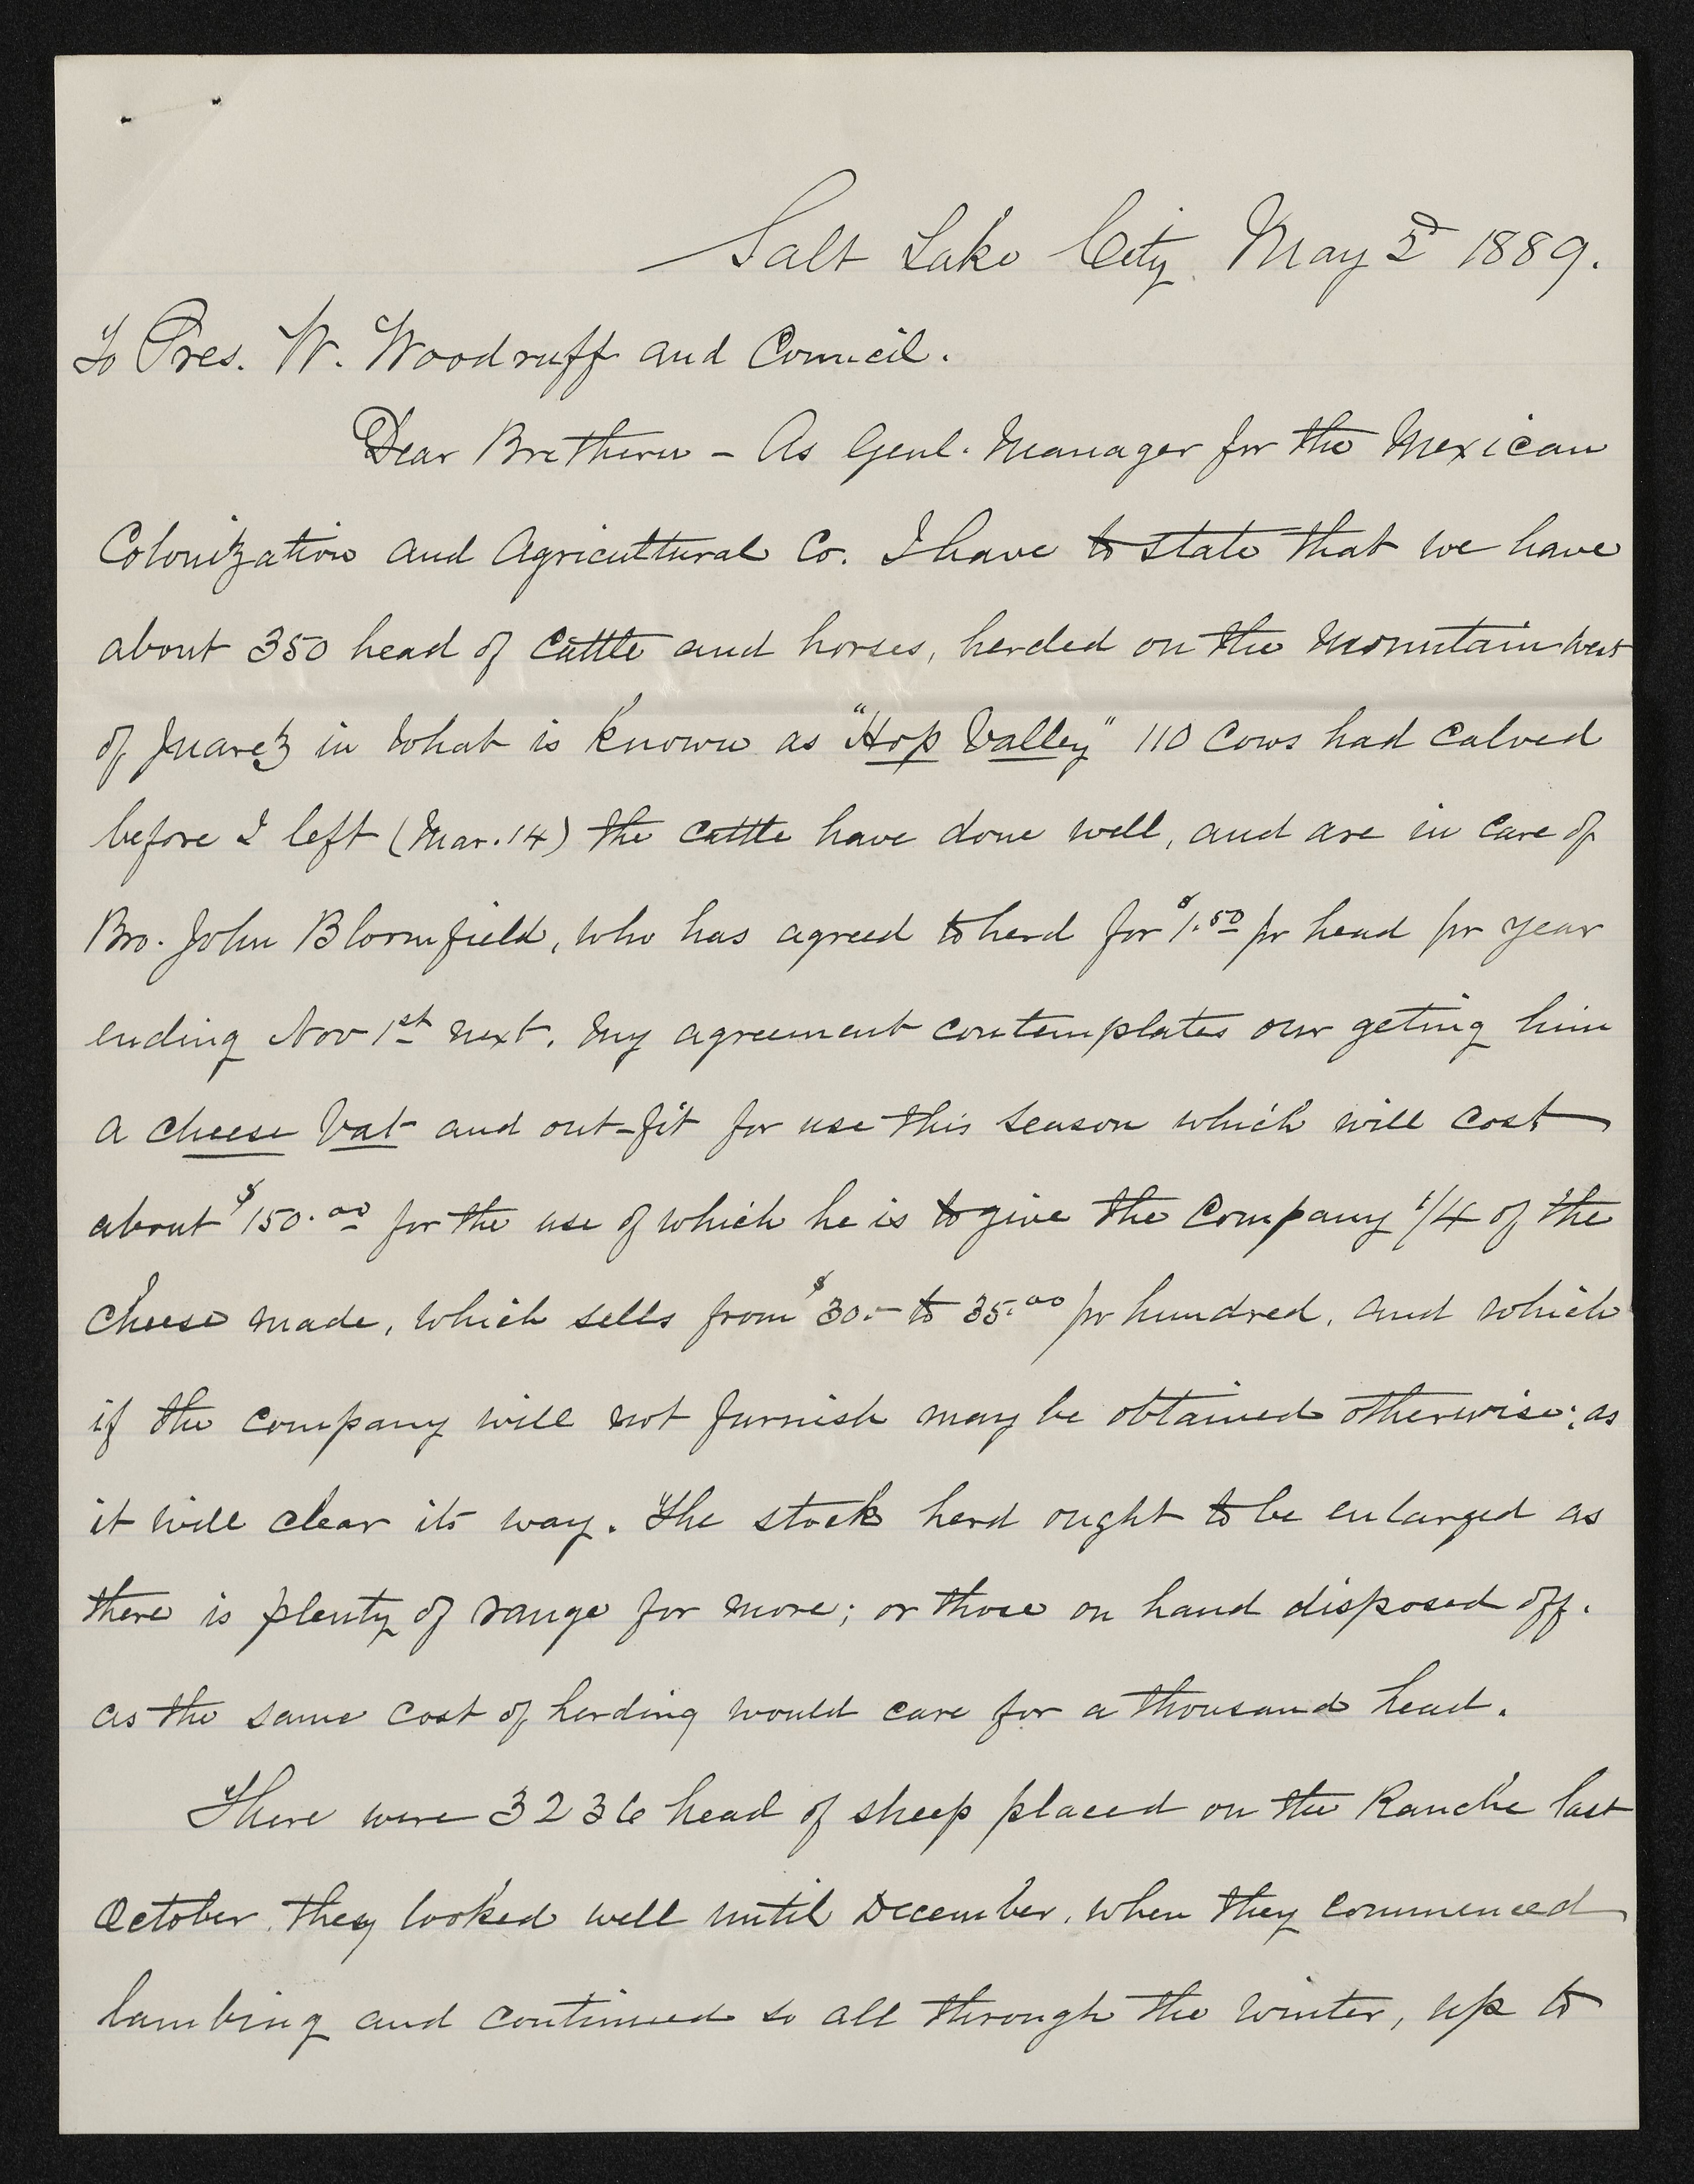 Salt Lake City May 2d 1889.
To Pres. W. Woodruff and Council.
Dear Brethern - As Genl. Manager for the Mexican
Colonization and Agricultural Co. I have to state that we have
about 350 head of cattle and horses, herded on the Mountain west
of Juarez in what is known as "Hop Valley" 110 Cows had calved
before I left (Mar. 14) the cattle have done well, and are in care of
Bro. John Bloomfield, who has agreed to herd for $1.50 pr head pr year
ending Nov 1st next. My agreement contemplates our geting him
a cheese Vat and out-fit for use this season which will cost
about $150.00 for the use of which he is to give the Company 1/4 of the
cheese made, which sells from $30.- to 35.00 pr hundred, and which
if the company will not furnish may be obtained otherwise; as
it will clear its way. The stock herd ought to be enlarged as
there is plenty of range for more; or those on hand disposed off.
as the same cost of herding would care for a thousand head.
There were 3236 head of sheep placed on the Ranche last
October. they looked well until December, when they commenced
lambing and continued so all through the winter, up to